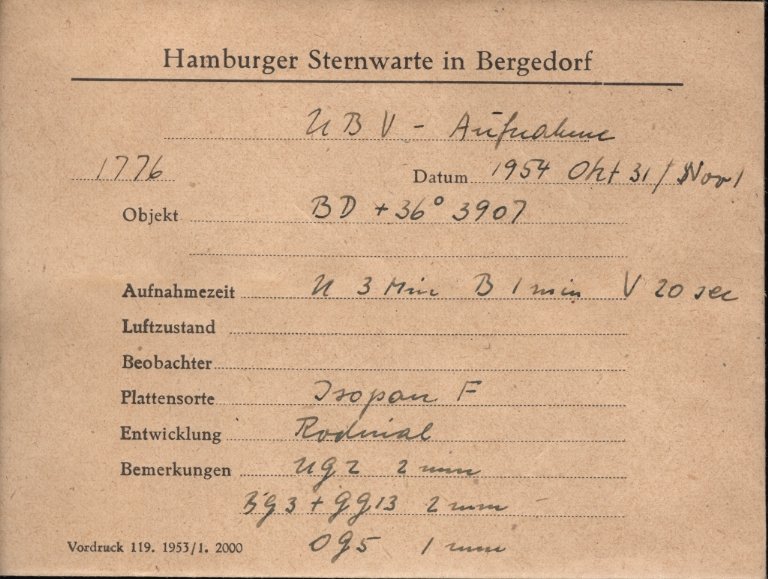 Hamburger Sternwarte in Bergedorf
UBV - Aufnahme
1776 Datum 1954 Okt 31 / Nov 1
Objekt BD + 36° 3907
Aufnahmezeit U 3 Min B 1 min V 20 sec
Luftzustand
Beobachter
Plattensorte Isopan F
Entwicklung Rodinal
Bemerkungen UG2 2 mm
BG3 + GG13 2 mm
Vordruck 119. 1953/1. 2000 OG5 1 mm